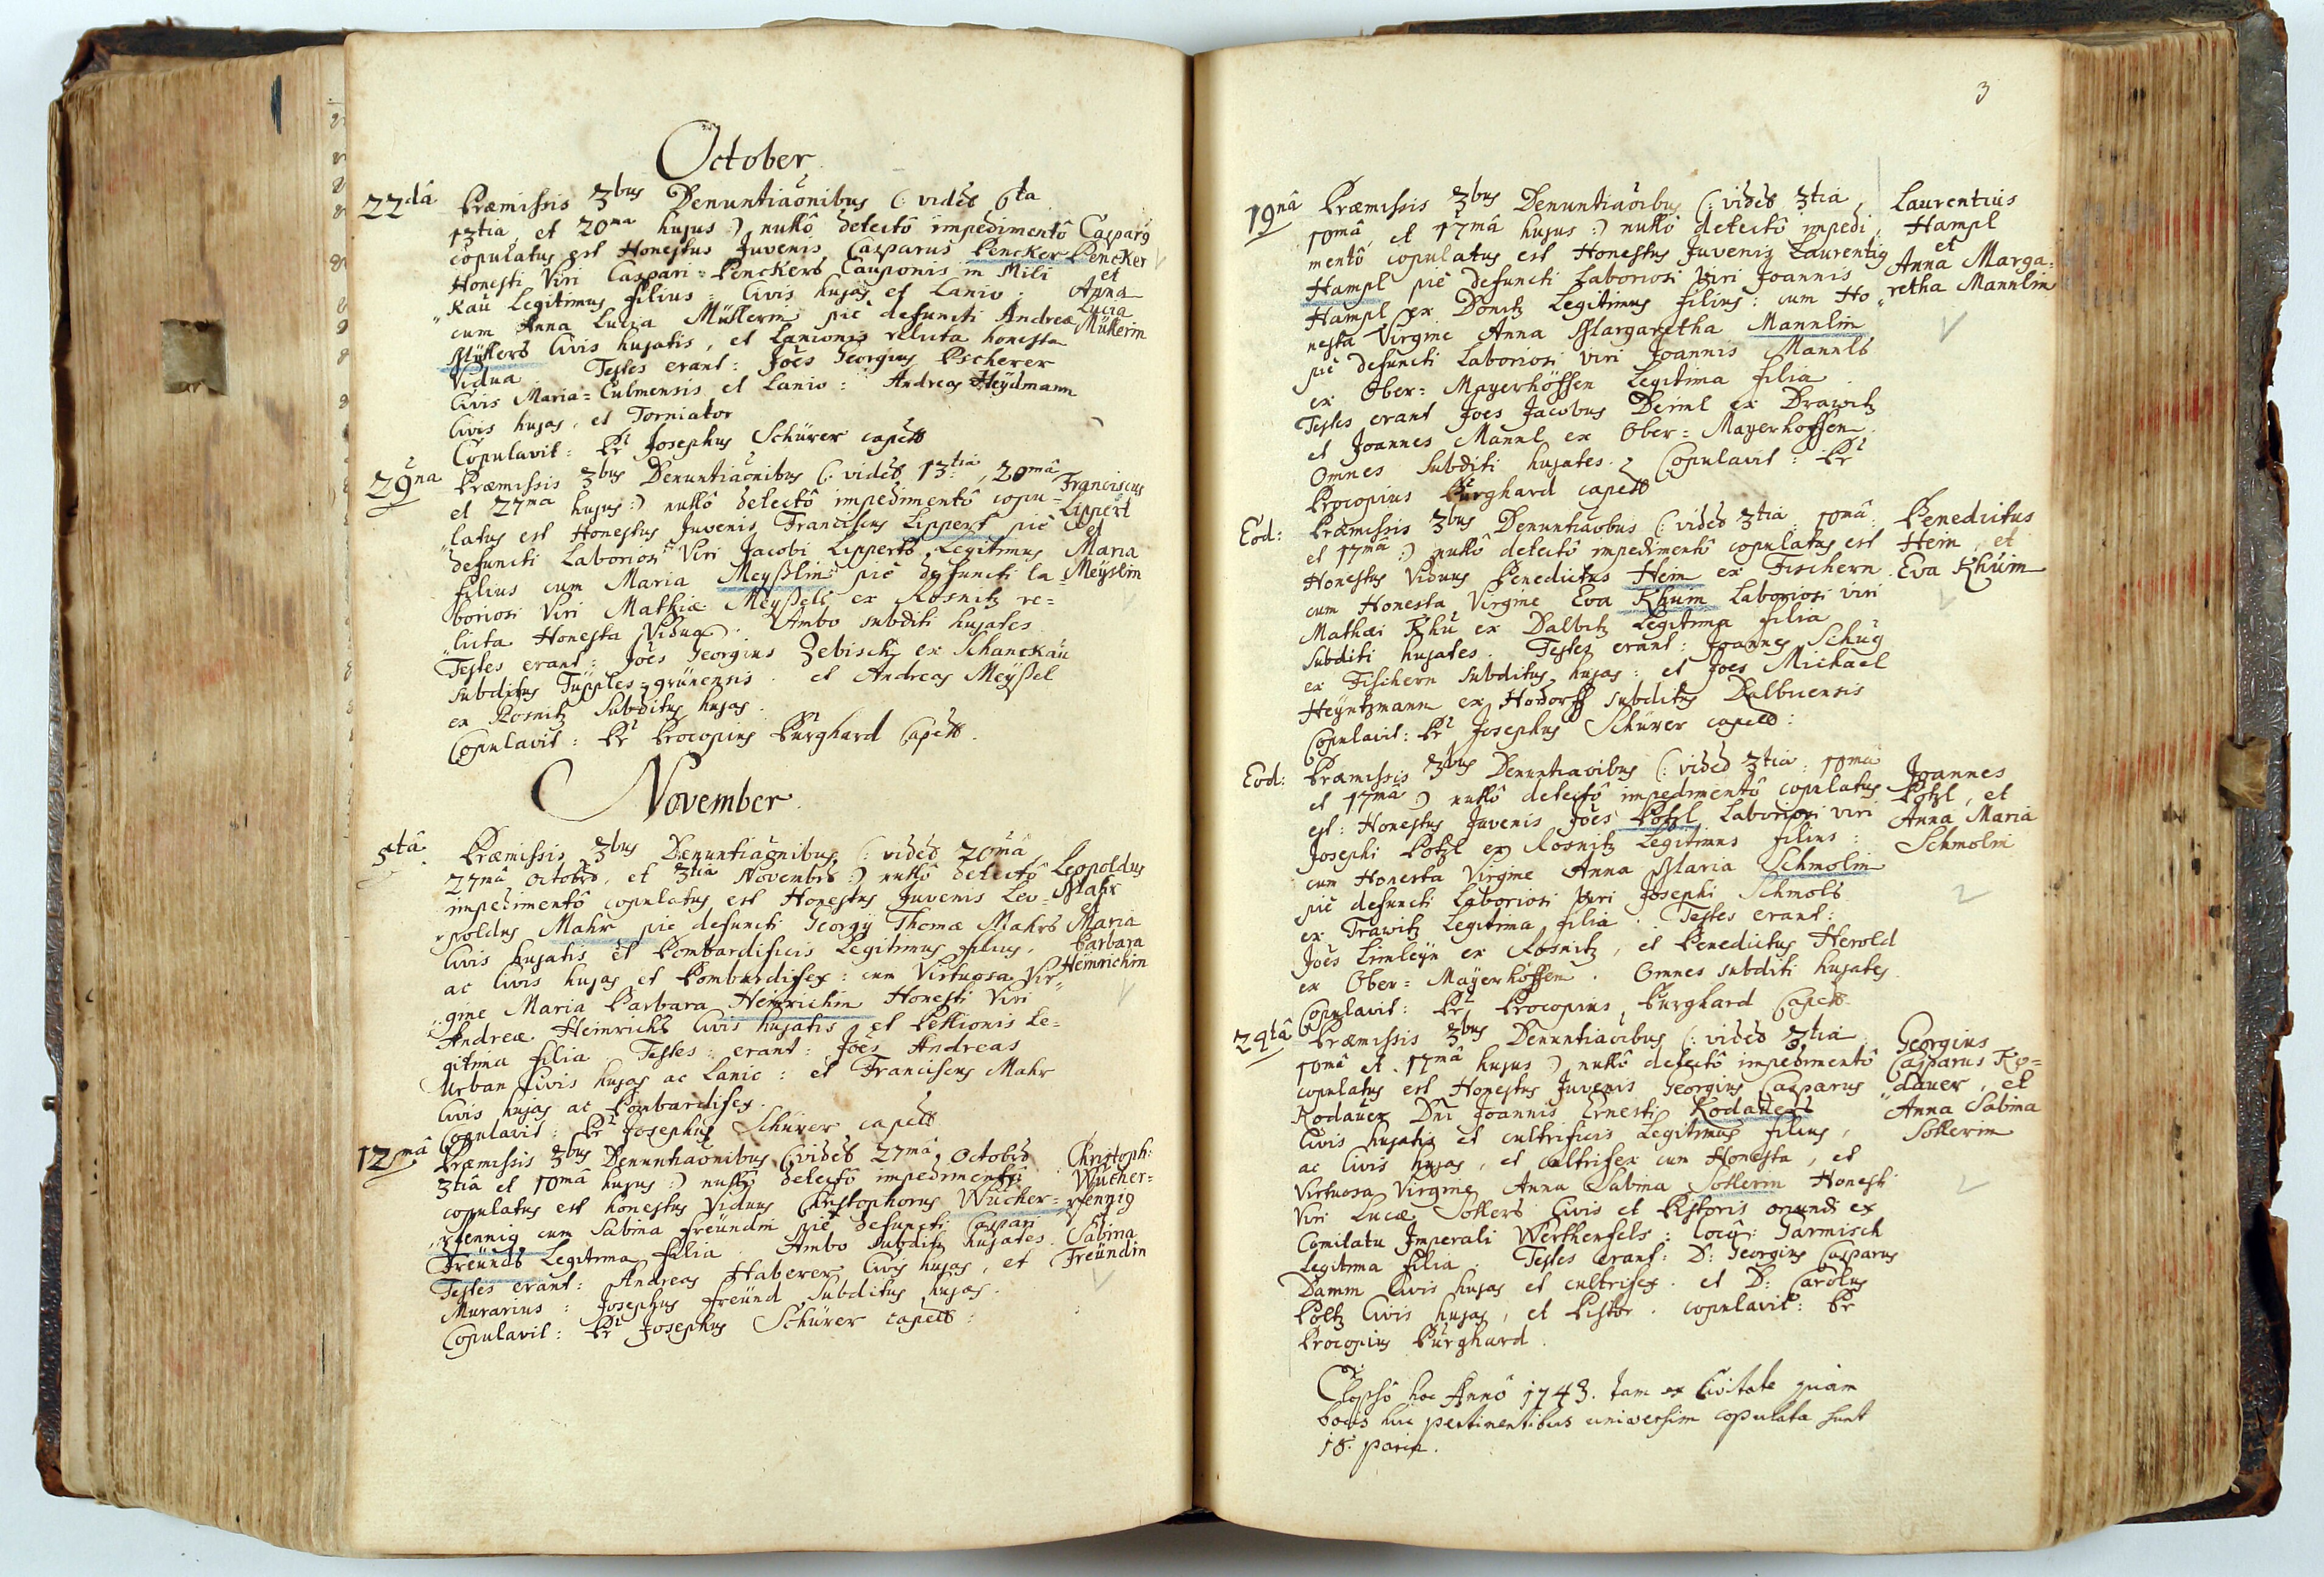 October
22dâ Præmissis 3bus Denuntiaonibus (: videl 6ta
13tia, et 20ma hujus :) nullô detectô impedimentô
copulatus est Honestus Juvenis Casparus Pencker
Honesti Viri Caspari Penckers Cauponis in Mili
"kau Legitimus filius : Civis hujas et Lanio :
cum Anna Lucia Müllerin pié defuncti Andreæ
Müllers Civis hujatis, et Lanionis relicta honesta
Vidua. Testes erant: Joes Georgius Pscherer
Civis Maria=Culmensis et Lanio : Andreas Heÿdmann
Civis hujas, et Torniator
Copulavit: Pr Josephus Schürer capell
Casparg
Pencker
et
Anna
Lucia
Müllerin
29na Præmissis 3bus Denuntiaonibus (: videl 13tia, 20mâ
et 27ma hujus :) nullô detectô impedimentô copu=
"latus est Honestus Juvenis Franciscus Lippert pié
defuncti Laboriosi Viri Jacobi Lipperts Legitimus
filius cum Maria Meÿßlin pié defuncti la=
boriosi Viri Mathiæ Meÿßels ex Rosnitz re=
"licta Honesta Vidua. Ambo subditi hujates
Testes erant: Joes Georgius Zebisch ex Schanckau
subditus Tüpples=grünensis. et Andreas Meÿßel
ex Rosnitz Subditus hujas.
Copulavit: Pr Procopius Purghard Capell.
Franciscus
Lippert
et
Maria
Meÿslin
November
5tâ Præmissis 3bus Denuntiaonibus (: videl 20mâ
27mâ Octobrs, et 3tia Novembrs :) nullô detectô
impedimentô copulatus est Honestus Juvenis Leo=
"poldus Mahr pie defuncti Georgÿ Thomæ Mahrs
Civis hujatis et Bombardificis Legitimus filius,
ac Civis hujas et Bombardifex : cum Virtuosa Vir"
"gine Maria Barbara Heinrichin Honesti Viri
Andreæ Heinrichs Civis hujatis et Pellionis Le=
gitima filia. Testes erant: Joes Andreas
Urban Civis hujas ac Lanio : et Franciscus Mahr
Civis hujas ac Bombardifex.
Copulavit: Pr Josephus Schürer capell
Leopoldus
Mahr
et
Maria
Barbara
Heinrichin
12mâ Præmissis 3bus Denuntiaonibus (: videl 27mâ Octobrs
3tiâ et 10mâ hujus :) nullô detectô impedimentô
copulatus est honestus Viduus Christophorus Wucher=
"pfennig cum Sabina freündin pié defuncti Caspari
Freünds Legitima filia. Ambo subditi hujates.
Testes erant: Andreas Haberer Civis hujas, et
Murarius : Josephus freünd Subditus hujas.
Copulavit: Pr Josephus Schürer capell :
Christoph:
Wucher=
pfennig
Sabina
Freündin
3
19nâ Præmissis 3bus Denuntiaoibus (: videl 3tia,
10mâ, et 17mâ hujus :) nullô detectô impedi
mentô copulatus est Honestus Juvenis Laurentig
Hampl pié defuncti Laboriosi Viri Joannis
Hampl ex Donitz Legitimus filius : cum Ho"
nesta Virgine Anna Margaretha Mannlin
pié defuncti Laboriosi viri Joannis Mannls
ex Ober=Mayerhöffen Legitima filia.
Testes erant Joes Jacobus Deiml ex Drawitz
et Joannes Mannl ex Ober=Mayerhoffen.
Omnes Subditi hujates. Copulavit: Pr
Procopius Purghard capell
Laurentius
Hampl
et
Anna Marga=
retha Mannlin
Eod: Præmissis 3bus Denuntiaobus (: videl 3tia, 10mâ
et 17ma :) nullô detectô impedimentô copulatus est
Honestus Viduus Benedictus Hein ex Fischern
cum Honesta Virgine Eva Khuin Laboriosi viri
Mathæi Khu ex Dalbitz Legitima filia
Subditi hujates. Testes erant: Joannes Schug
ex Fischern Subditus hujas : et Joes Michael
Heÿntzmann ex Hodorff subditus Dalbicensis
Copulavit: Pr Josephus Schürer capell :
Benedictus
Hein, et
Eva Khuin
Eod: Præmissis 3bus Denuntiaoibus (: videl 3tia, 10ma
et 17mâ :) nullô detectô impedimentô copulatus
est: Honestus Juvenis Joes Potzl Laboriosi viri
Josephi Potzl ex Rosnitz Legitimus filius :
cum Honesta Virgine Anna Maria Schmolin
pié defuncti Laboriosi Viri Josephi Schmols
ex Trawitz Legitima filia. Testes erant:
Joes Limleÿn ex Rosnitz, et Benedictus Herold
ex Ober=Maÿerhöffen. Omnes subditi hujates.
Copulavit: Pr Procopius Purghard Capell
Joannes
Potzl, et
Anna Maria
Schmolin
24tâ Præmissis 3bus Denuntiaoibus (: videl 3tia
10mâ et 17mâ hujus :) nullô detectô impedimentô
copulatus est Honestus Juvenis Georgius Casparus
Kodauer Dni Joannis Ernesti Kodauers
Civis hujatis et cultrificis Legitimus filius,
ac Civis hujas, et cultrifex cum Honesta, et
Virtuosa Virgine Anna Sabina Sollerin Honesti
Viri Lucæ Sollers Civis et Pistoris oriundi ex
Comitatu Imperali Werthenfels : locô: Garmisch
Legitima filia. Testes erant: D: Georgius Casparus
Damm Civis hujas et cultrifex. et D: Carolus
Poltz Civis hujas, et Pistor. copulavit: Pr
Procopius Purghard.
Georgius
Casparus Ko=
"dauer, et
Anna Sabina
Sollerin
Elapsô hoc Annô 1743. tam ex Civitate quàm
locis huc pertinentibus universim copulata sunt
18. paria.